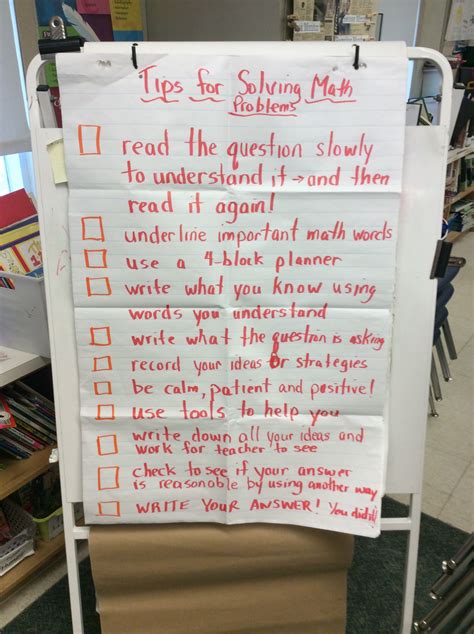 Tips for Solving Math
Problems
read the question slowly
to understand it → and then
read it again!
underline important math words
use a 4-block planner
write what you know using
words you understand
write what the question is asking
record your ideas or strategies
be calm, patient and positive!
use tools to help you
write down all your ideas and
work for teacher to see
check to see if your answer
is reasonable by using another way
WRITE YOUR ANSWER! You did it!